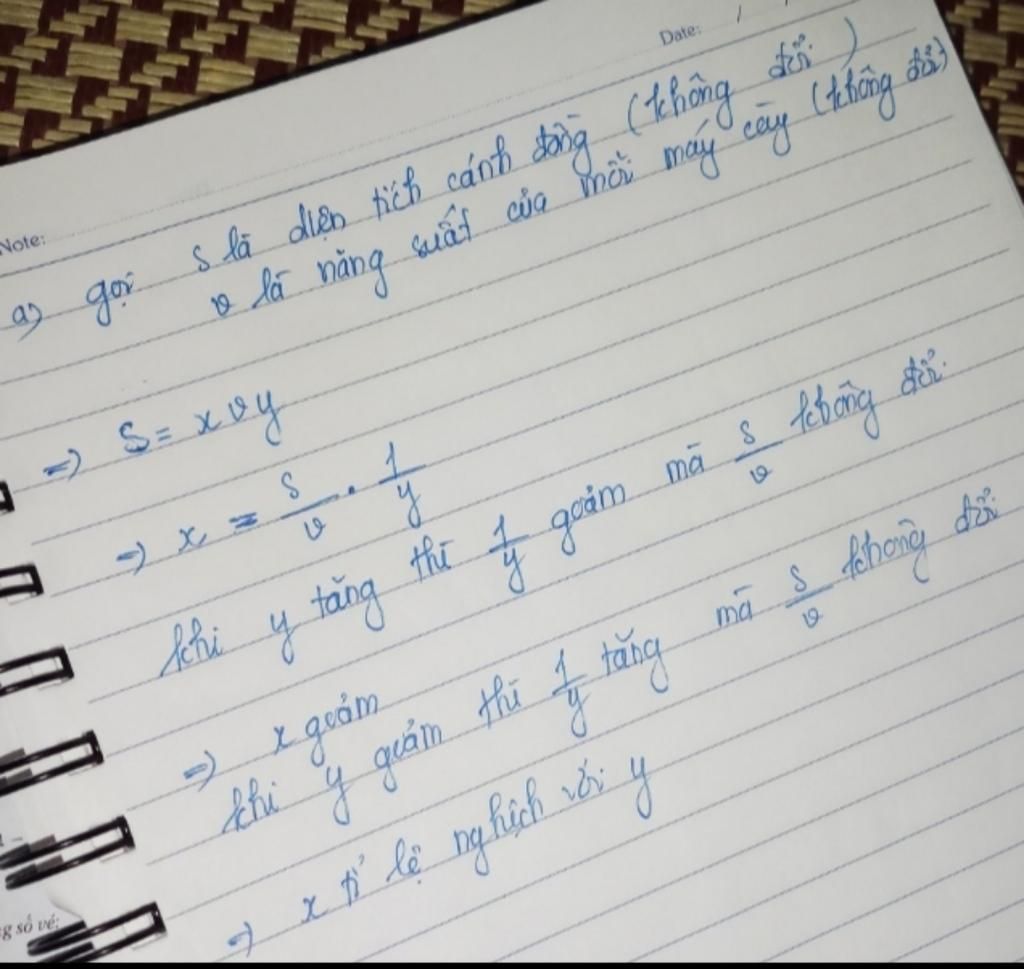 Date: / /
Note:
a) gọi s là diện tích cánh đồng (không đổi)
v là năng suất của mỗi máy cày (không đổi)
=> S = x v y
=> x = s/v . 1/y
khi y tăng thì 1/y giảm mà s/v không đổi
=> x giảm
khi y giảm thì 1/y tăng mà s/v không đổi
=> x tỉ lệ nghịch với y
g số vé: